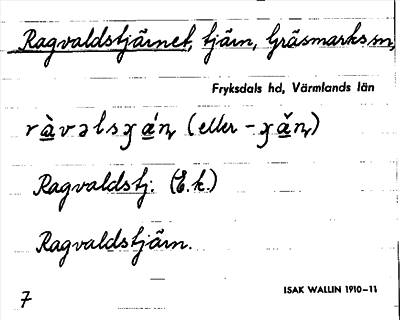 Ragvaldstjärnet, tjärn, Gräsmarks sn,
Fryksdals hd, Värmlands län
ràvəlsɣán (eller -ɣǎn)
Ragvaldstj. (E.k.)
Ragvaldstjärn.
7
ISAK WALLIN 1910–11